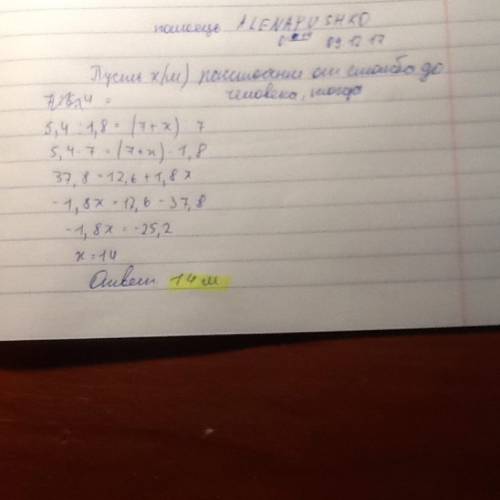 помощь ALENAPUSHKO
09.12.17
Пусть x(м) расстояние от столба до
человека, тогда
5,4 : 1,8 = (7+x) : 7
5,4·7 = (7+x)·1,8
37,8 = 12,6 + 1,8x
-1,8x = 12,6 - 37,8
-1,8x = -25,2
x = 14
Ответ 14 м